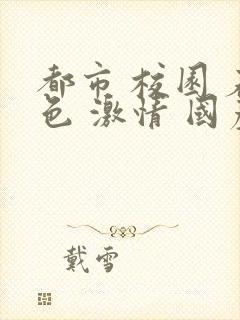 都市 校园 
色 激情 國
戴雪